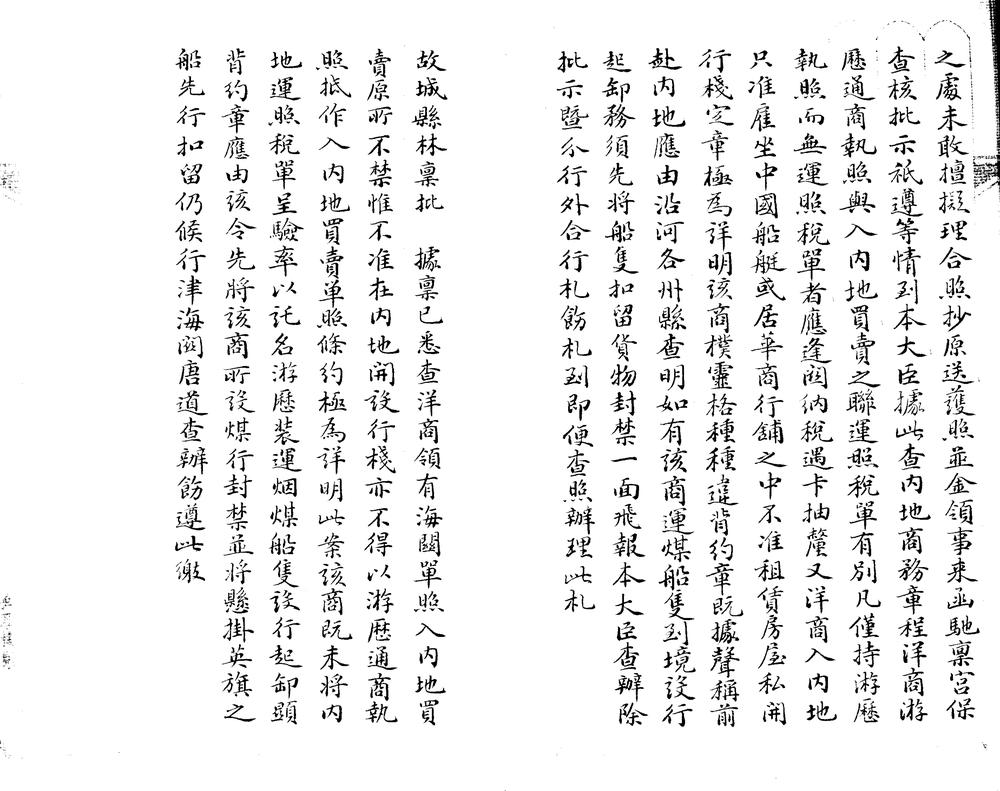 之處未敢擅擬理合照抄原送護照並金領事來函馳稟宮保
查核批示祇遵等情到本大臣據此查內地商務章程洋商游
歷通商執照與入內地買賣之聯運照稅單有別凡僅持游歷
執照而無運照稅單者應逢関納稅遇卡抽釐又洋商入內地
只准雇坐中國船艇或居華商行舖之中不准租賃房屋私開
行棧定章極為詳明該商樸靈格種種違背約章既據聲稱前
赴內地應由沿河各州縣查明如有該商運煤船隻到境設行
起卸務須先將船隻扣留貨物封禁一面飛報本大臣查辦除
批示暨分行外合行札飭札到即便查照辦理此札
故城縣林稟批　據稟已悉查洋商領有海關單照入內地買
賣原所不禁惟不准在內地開設行棧亦不得以游歷通商執
照抵作入內地買賣单照條約極為詳明此案該商既未將內
地運照稅單呈驗率以託名游歷裝運烟煤船隻設行起卸顯
背約章應由該令先將該商所設煤行封禁並將懸掛英旗之
船先行扣留仍候行津海関唐道查辦飭遵此繳